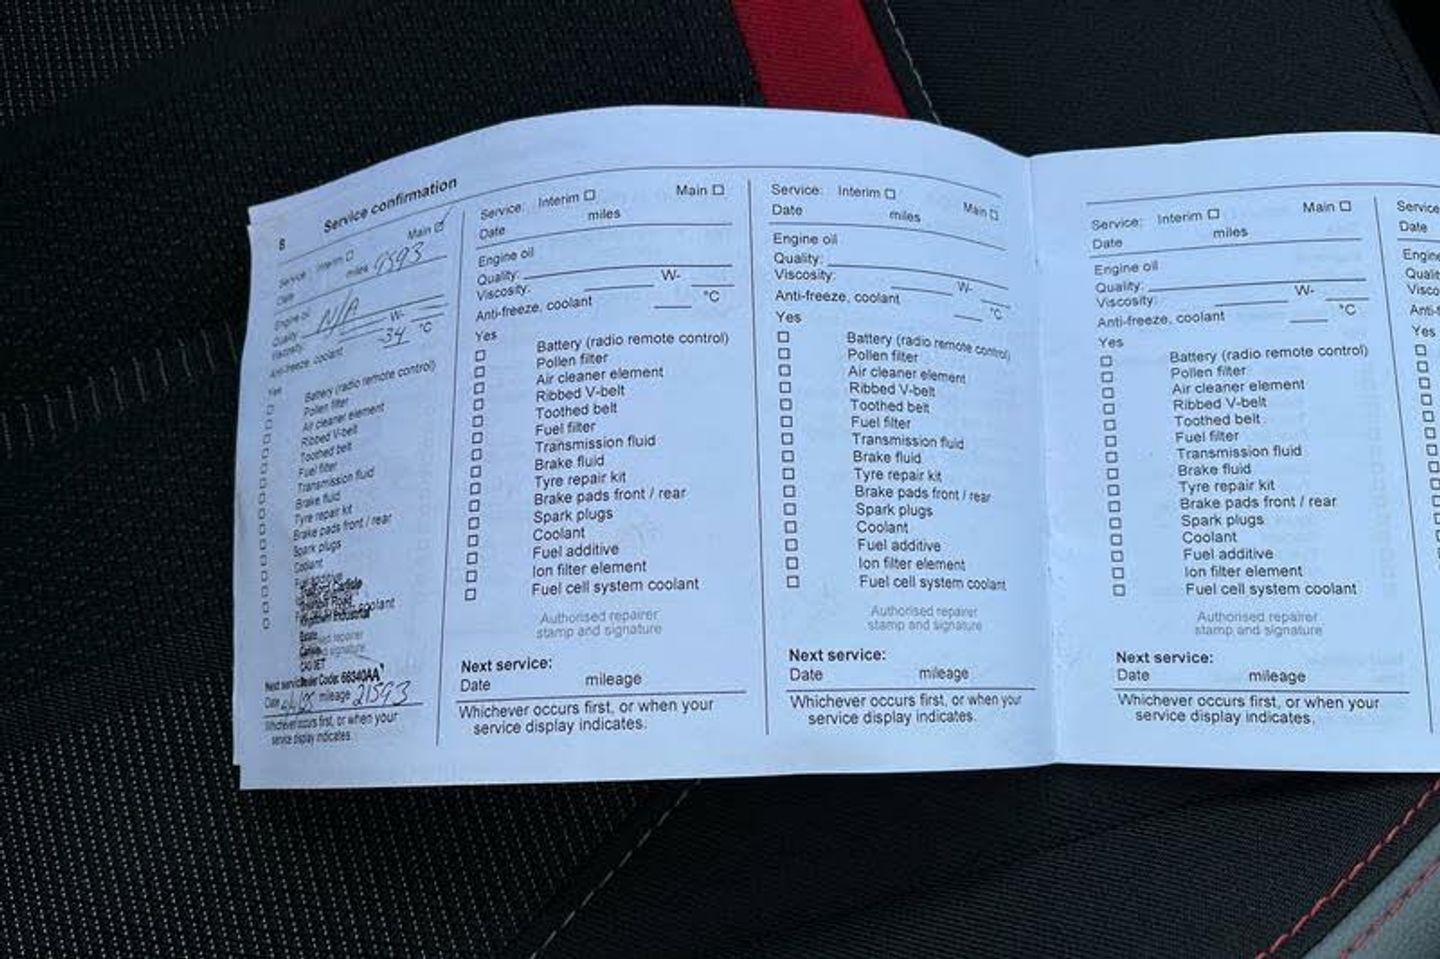 8 Service confirmation
Service: Interim □ Main ☑
Date miles 9593
Engine oil
Quality: N/A
Viscosity: W-
Anti-freeze, coolant -34 °C
Yes
□ Battery (radio remote control)
□ Pollen filter
□ Air cleaner element
□ Ribbed V-belt
□ Toothed belt
□ Fuel filter
□ Transmission fluid
□ Brake fluid
□ Tyre repair kit
□ Brake pads front / rear
□ Spark plugs
□ Coolant
□ Fuel additive
Carlisle
Kingstown Industrial
Estate
Carlisle
CA3 0ET
Dealer Code: 68340AA
Next service:
Date mileage 21593
Whichever occurs first, or when your
service display indicates.
Service: Interim □ Main □
Date miles
Engine oil
Quality:
Viscosity: W-
Anti-freeze, coolant °C
Yes
□ Battery (radio remote control)
□ Pollen filter
□ Air cleaner element
□ Ribbed V-belt
□ Toothed belt
□ Fuel filter
□ Transmission fluid
□ Brake fluid
□ Tyre repair kit
□ Brake pads front / rear
□ Spark plugs
□ Coolant
□ Fuel additive
□ Ion filter element
□ Fuel cell system coolant
Authorised repairer
stamp and signature
Next service:
Date mileage
Whichever occurs first, or when your
service display indicates.
Service: Interim □ Main □
Date miles
Engine oil
Quality:
Viscosity: W-
Anti-freeze, coolant °C
Yes
□ Battery (radio remote control)
□ Pollen filter
□ Air cleaner element
□ Ribbed V-belt
□ Toothed belt
□ Fuel filter
□ Transmission fluid
□ Brake fluid
□ Tyre repair kit
□ Brake pads front / rear
□ Spark plugs
□ Coolant
□ Fuel additive
□ Ion filter element
□ Fuel cell system coolant
Authorised repairer
stamp and signature
Next service:
Date mileage
Whichever occurs first, or when your
service display indicates.
Service: Interim □ Main □
Date miles
Engine oil
Quality:
Viscosity: W-
Anti-freeze, coolant °C
Yes
□ Battery (radio remote control)
□ Pollen filter
□ Air cleaner element
□ Ribbed V-belt
□ Toothed belt
□ Fuel filter
□ Transmission fluid
□ Brake fluid
□ Tyre repair kit
□ Brake pads front / rear
□ Spark plugs
□ Coolant
□ Fuel additive
□ Ion filter element
□ Fuel cell system coolant
Authorised repairer
stamp and signature
Next service:
Date mileage
Whichever occurs first, or when your
service display indicates.
Service
Date
Yes